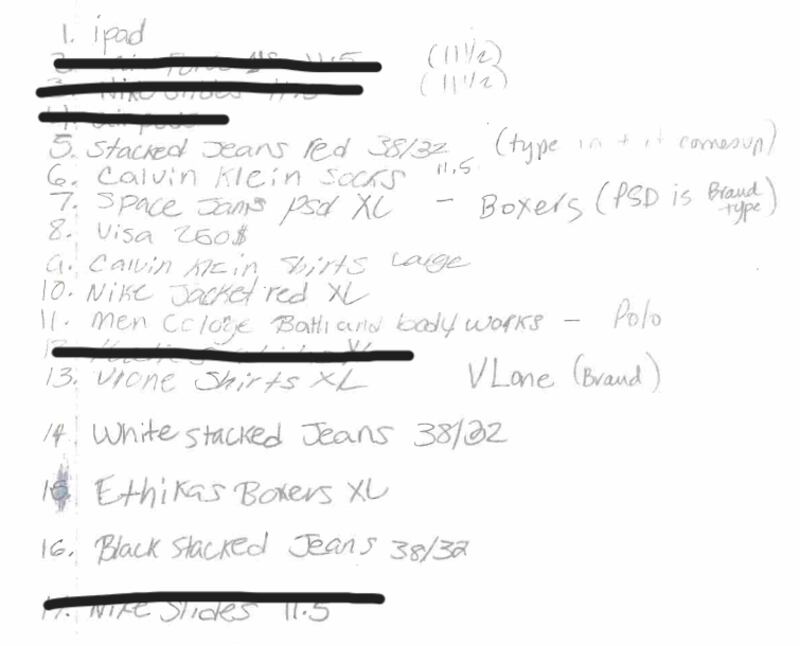 1. ipad
2. Air Force 11.5 (11 1/2)
3. Nike Slides 11.5 (11 1/2)
4.
5. Stacked Jeans red 38/32 (type in + it comes up)
6. Calvin Klein Socks 11.5
7. Space Jams psd XL - Boxers (PSD is Brand type)
8. Visa 250$
9. Calvin Klein Shirts Large
10. Nike Jacket red XL
11. Men Cologe Bath and body works - Polo
12. XL
13. Vlone Shirts XL VLone (Brand)
14 White stacked Jeans 38/32
15 Ethikas Boxers XL
16. Black stacked Jeans 38/32
17. Nike Slides 11.5